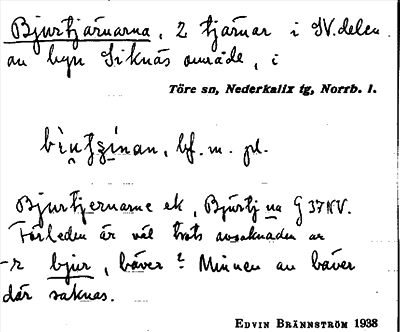 Bjurtjärnarna, 2 tjärnar i SV. delen
av byn Siknäs område, i
Töre sn, Nederkalix tg, Norrb. l.
bf. m. pl.
Bjurtjernarne ek, Bjurtj na G 37 KV.
Förleden är väl trots avsaknaden av
-r bjur, bäver? Minnen av bäver
där saknas.
EDVIN BRÄNNSTRÖM 1938